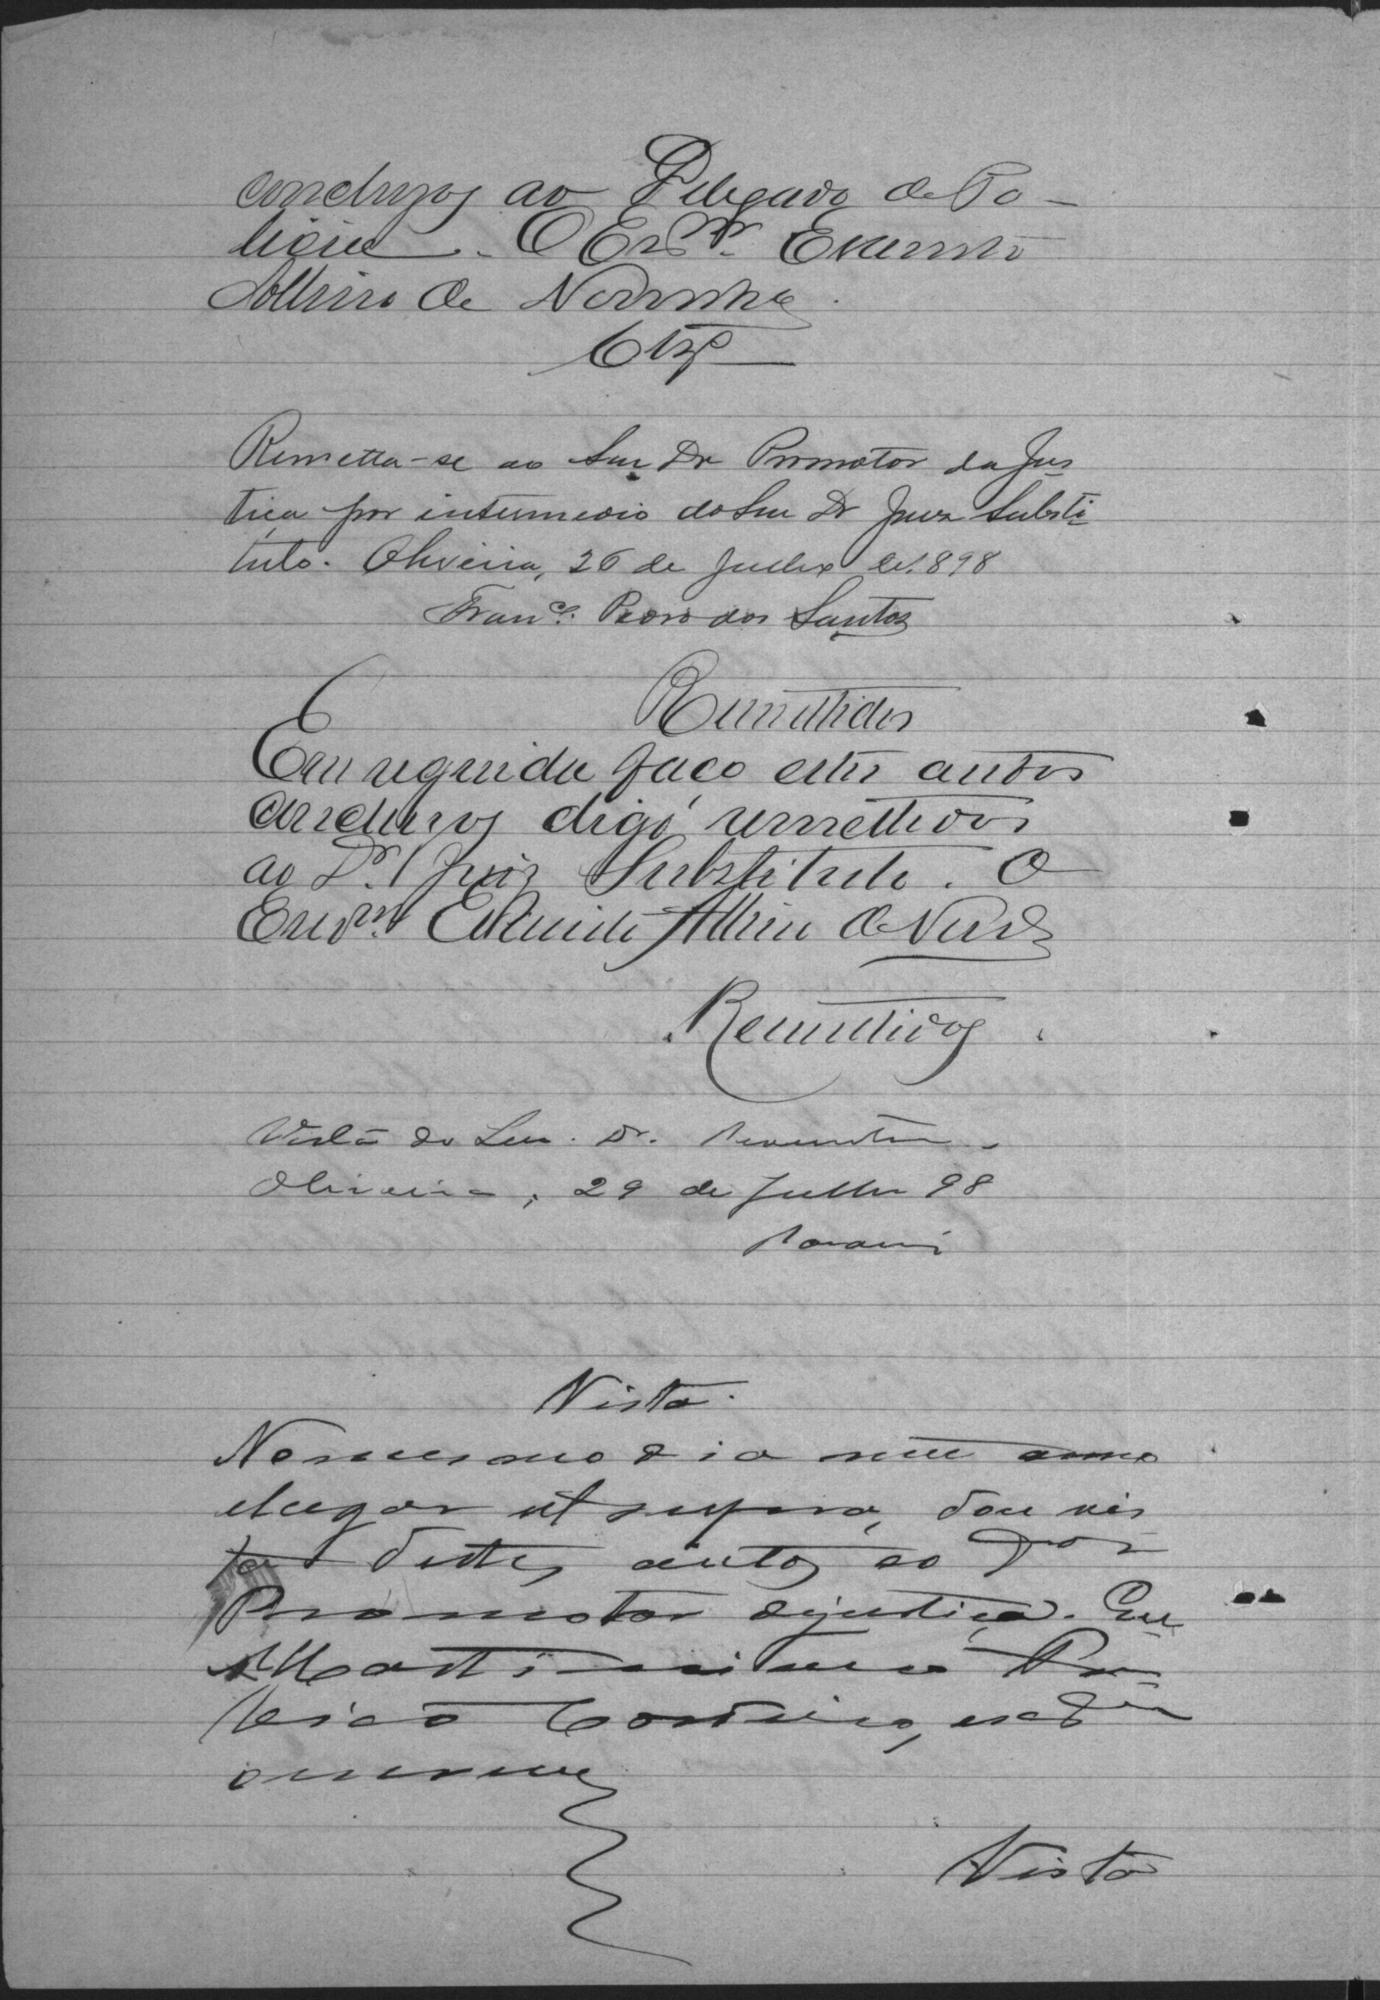 concluzos ao Delegado de Po-
licia. O Escrm. Evaristo
Albino de Noronha.
Clzos
Remetta-se ao Snr Dr Promotor da Jus
tiça por intermedio do Snr Dr Juiz Substi
tuto. Oliveira, 26 de Julho de 1898
Franco. Pedro dos Santos
Remettidos
Em seguida faço estes autos
concluzos digo, remettidos
ao Dr. Juiz Substituto. O
Escrm. Evaristo Albino de
Remettidos
Vista do Snr. Dr. Promotor
Oliveira, 29 de Julho 98
Vista
No mesmo dia mez anno
e lugar ut supra, dou vis
ta destes autos ao
Promotor de justiça. Eu
Cordeiro,
Vista